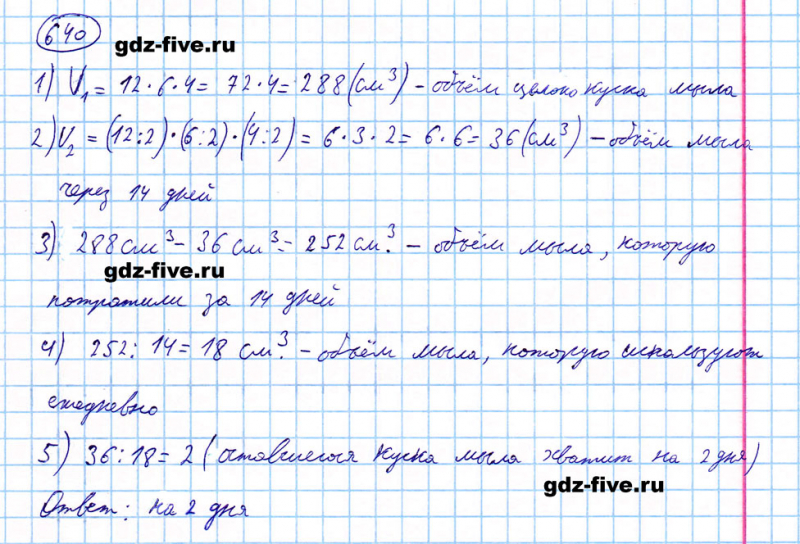 640
gdz-five.ru
1) V₁ = 12·6·4 = 72·4 = 288 (см³) – объём целого куска мыла
2) V₂ = (12:2)·(6:2)·(4:2) = 6·3·2 = 6·6 = 36 (см³) – объём мыла
через 14 дней
3) 288 см³ – 36 см³ = 252 см³. – объём мыла, которую
gdz-five.ru
потратили за 14 дней
4) 252 : 14 = 18 см³. – объём мыла, которую используют
ежедневно
5) 36 : 18 = 2 (оставшегося куска мыла хватит на 2 дня)
gdz-five.ru
Ответ: на 2 дня